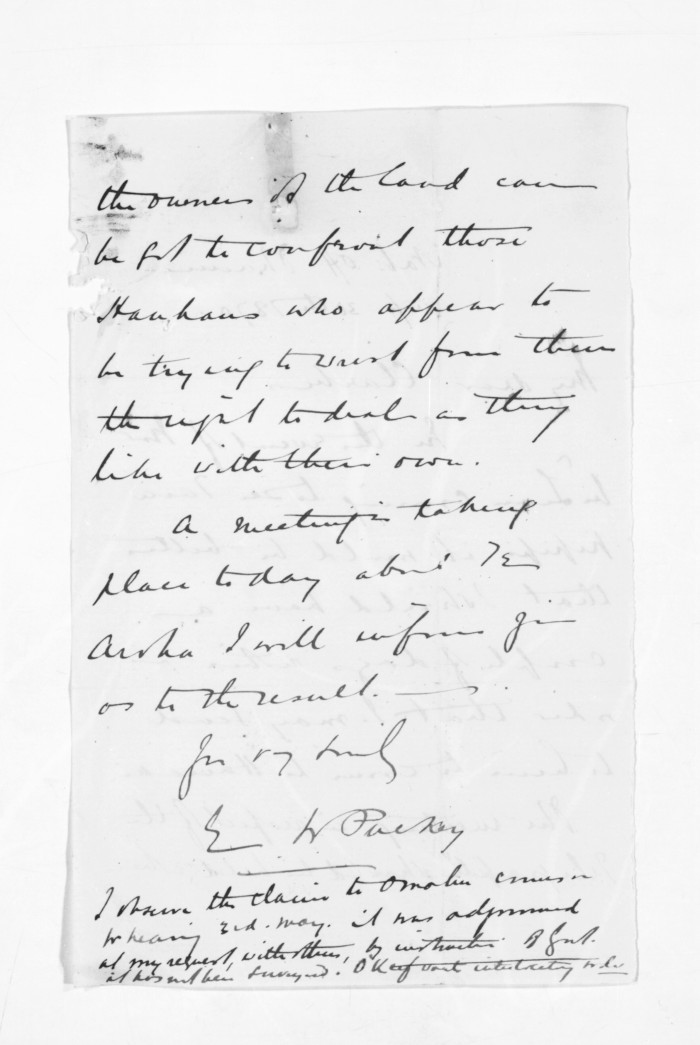 the owners of the land can
be got to confront those
Hauhaus who appear to
be trying to wrest from them
the right to deal as they
like with their own.
A meeting is taking
place today about Te
Aroha I will inform you
as to the result.
Yrs vy truly
E W Puckey
I observe the claim to Omahu comes on
for hearing 3rd. May. it was adjourned
at my request, with others, by instructions of Govt.
it has not been surveyed.